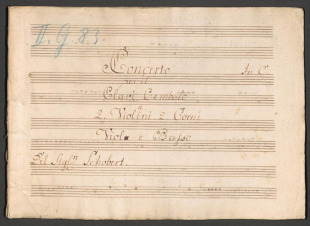 II. G. 83.
Concerto In C.
per il
Clavi Cembalo
2 Violini 2 Corni
Viola e Basso
Del Sig.re Schobert.